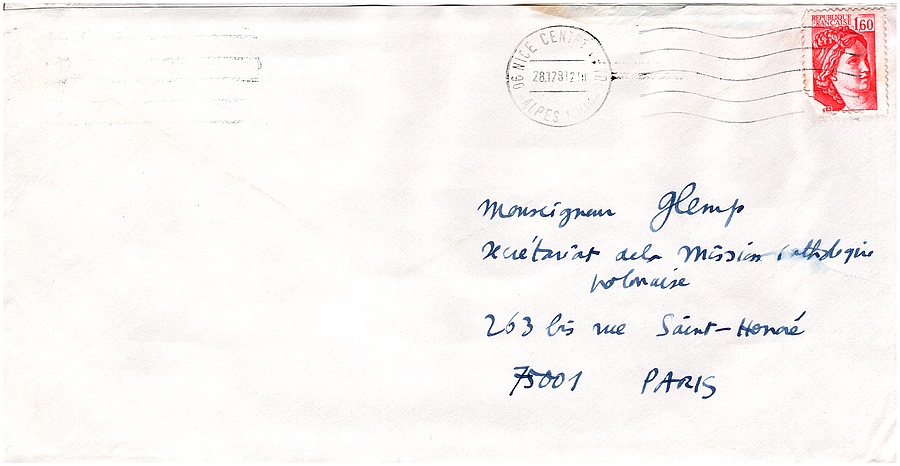 REPUBLIQUE
FRANÇAISE 1,60
06 NICE CENTRE
28.12.81 21H
ALPES
Monseigneur Glemp
Secrétariat dela Mission catholique
polonaise
263 bis rue Saint-Honoré
75001 PARIS